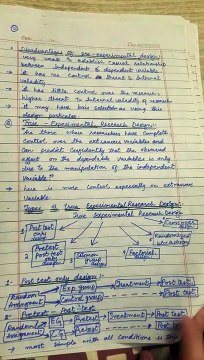 Disadvantages of pre-experimental design:
very weak to establish casual relationship
between independent & dependent variable.
It has no control on threat to Internal
validity.
It has little control over the research.
higher threat to Internal validity of research
It may have bais selection using this
design particular
True - Experimental Research Design:
The those where researchers have complete
control over the extraneous variables and
can predict confidently that the observed
effect on the dependable variables is only
due to the manipulation of the independent
variable."
here is more control especially on extraneous
variable.
Types of True Experimental Research Design:
True Experimental Research Design
1) Post test only design
2) Pretest Post test design
Solomon group design
4) Factorial design
Randomized block design
Crossover design
1 - Post test only design:
Random Assignment
Exp. group
Treatment
Post test
Control group
Post test
Pretest - Post test
Random Assignment
EG
Pretest
Treatment
Post test
CG
Pretest
Post test
most simple with all conditions is this